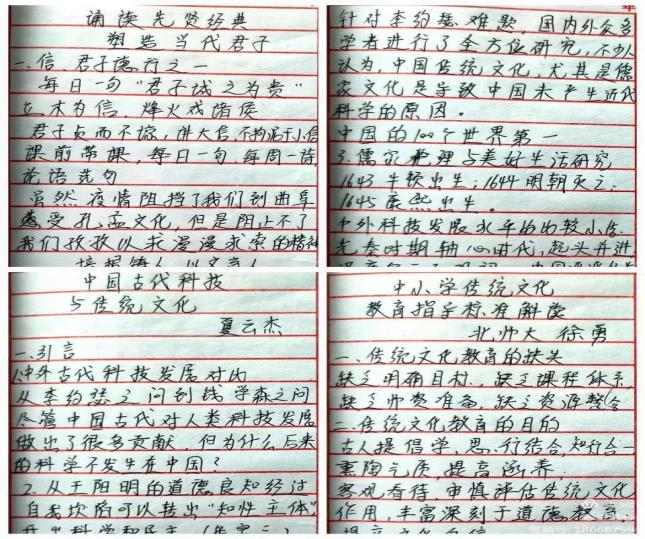 诵读先贤经典
塑造当代君子
一、信 君子德行之一
每日一句 "君子诚之为贵"
立木为信，烽火戏诸侯
君子贞而不谅，讲大信，不拘泥于小信
课前带课，每日一句，每周一诗
论语选句
虽然疫情阻挡了我们到曲阜
感受孔孟文化，但是阻止不了
我们孜孜以求漫漫求索的精神
培根铸人 以文育人
针对李约瑟难题，国内外众多
学者进行了全方位研究，不少人
认为，中国传统文化，尤其是儒
家文化是导致中国未产生近代
科学的原因。
中国的100个世界第一
3.儒家 理与美好生活研究
1643牛顿出生；1644明朝灭亡
1645 出生。
中外科技发展水平的比较小
先秦时期轴心时代，起头并进
中国古代科技
与传统文化
夏云杰
一、引言
1.中外古代科技发展对比
从李约瑟之问到钱学森之问
尽管中国古代对人类科技发展
做出了很多贡献，但为什么后来
的科学不发生在中国？
2.从王阳明的道德良知经过
自我坎陷可以转出"知性主体"
开出科学和民主
中小学传统文化
教育指导标准解读
北师大 徐勇
一、传统文化教育的缺失
缺乏明确目标，缺乏课程体系，
缺乏师资准备，缺乏资源整合
二、传统文化教育的目的
古人提倡学、思、行结合，知行合一
熏陶气质，提高涵养
客观看待，审慎评估传统文化
作用，丰富深刻于道德教育
提高文化自信